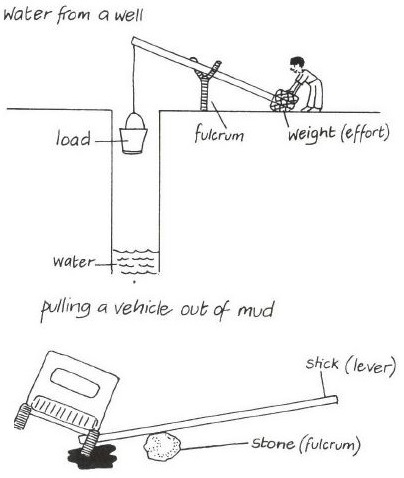 Water from a well
load
fulcrum
weight (effort)
water
pulling a vehicle out of mud
stick (lever)
stone (fulcrum)